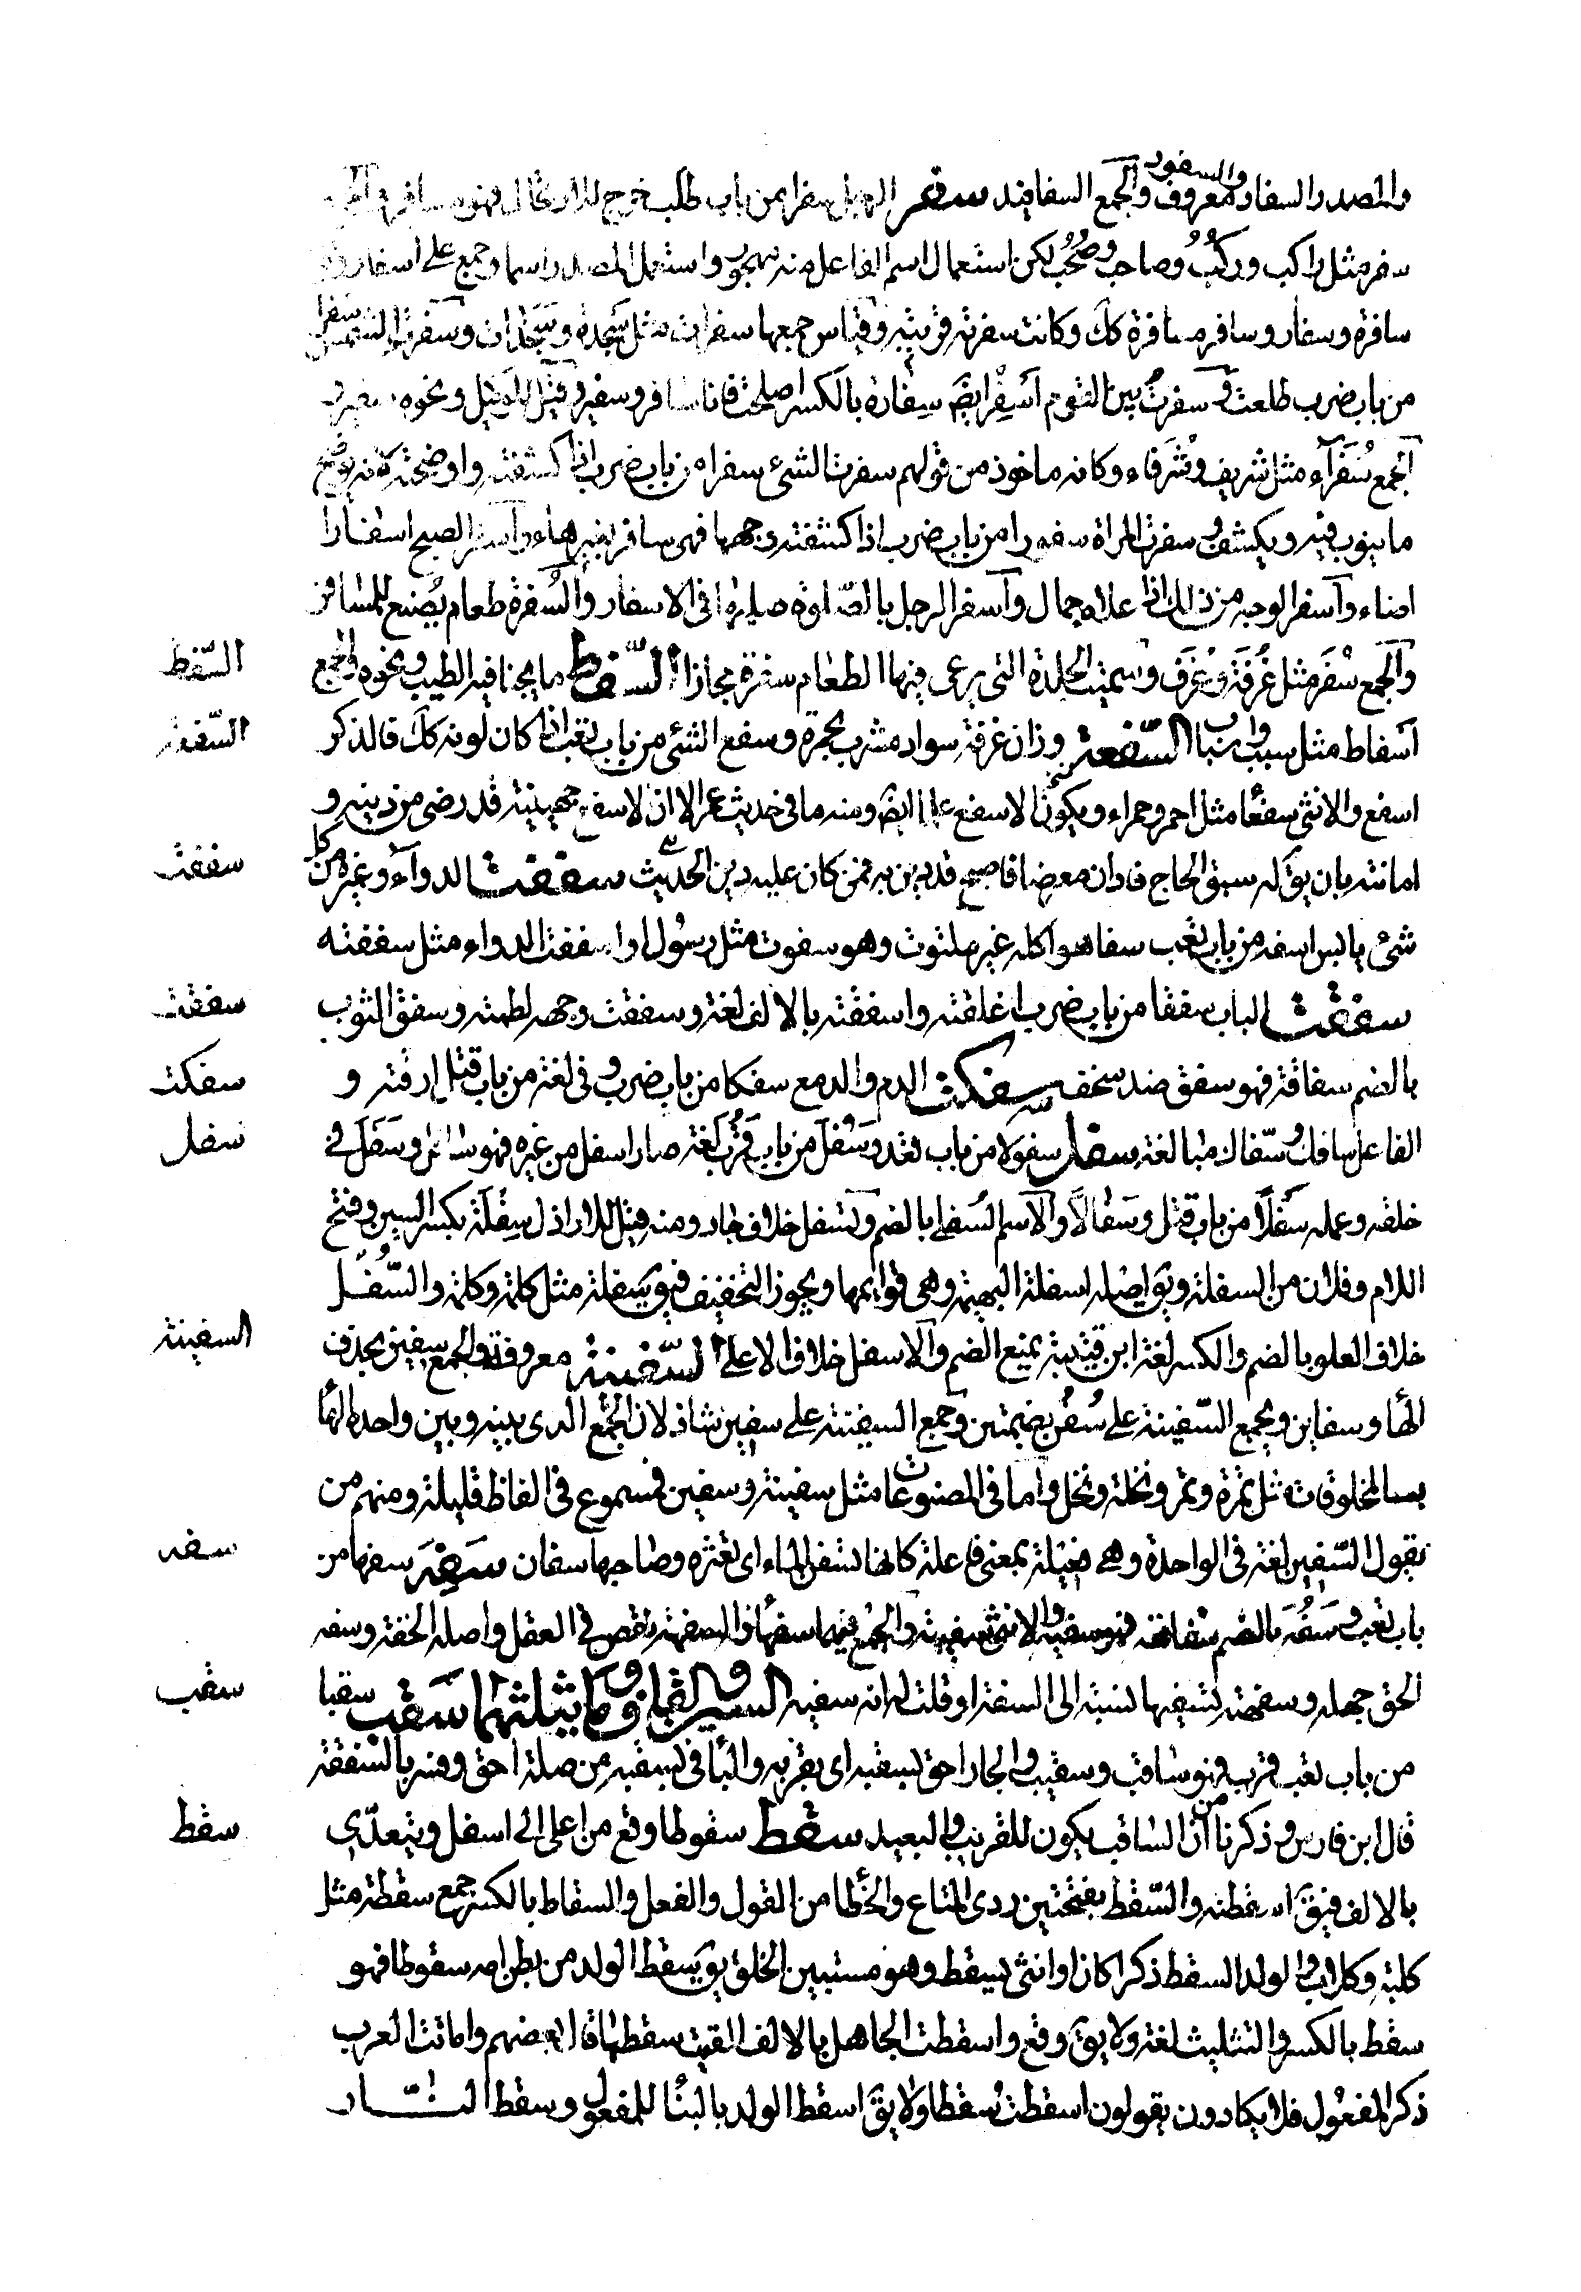 والمصدر السفاد والسفود معروف والجمع السفافيد سفر الرجل سفرا من باب طلب خرج للارتحال فهو سافر والجمع
سفر مثل راكب وركب وصاحب وصحب لكن استعمال اسم الفاعل منه مهجور واستعمل المصدر اسما وجمع على اسفار
سافرة وسفار وسافر مسافرة كك وكانت سفرته قريبة وقياس جمعها سفرات مثل سجدة وسجدات وسفرت الشمس سفرا
من باب ضرب طلعت وسفرت بين القوم اسفر ايض سفارة بالكسر اصلحت فانا سافر وسفير وقيل للوكيل ونحوه سفير و
الجمع سفرآء مثل شريف وشرفاء وكانه ماخوذ من قولهم سفرت الشئ سفرا من باب ضرب اذا كشفته واوضحته لانه يوضح
ما ينوب فيه ويكشفه وسفرت المراة سفورا من باب ضرب اذا كشفته وجهها فهى سافر بغير هاء وآسفر الصبح اسفارا
اضاء وآسفر الوجه من ذلك اذا علاه جمال وآسفر الرجل بالصلوة صلاها فى الاسفار والسُفرة طعام يُصنع للمسافر
والجمع سُفَر مثل غُرفة وغُرَف وسميت الجلدة التى يوعى فيها الطعام سفرة مجازا السّفط ما يخبا فيه الطيب ونحوه والجمع
السّفط
آسفاط مثل سبب واسباب السّفعة وزان غرفة سواد مشرب بحمرة وسفع الشئ من باب تعب اذا كان لونه كك فالذكر
السّفعة
اسفع والانثى سفعآ مثل احمر وحمراء ويكون الاسفع علما ايض ومنه ما فى حديث عمر الا ان الاسفع جهينية قد رضى من دينه و
امانته بان يقَ له سبق الحاج فادان معرضا فاصبح قد رين به فمن كان عليه دين الحديث سففت الدوآء وغيره من كل
سففت
شئ يابس اسفه من باب تعب سفا هو اكله غير ملتوت وهو سفوف مثل رسول واسففت الدواء مثل سففته
سفقت الباب سفقا من باب ضرب اغلقته واسفقته بالالف لغة وسفقت وجهه لطمته وسفق الثوب
سفقت
بالضم سفاقة فهو سفق ضد سخف سفكت الدم والدمع سفكا من باب ضرب وفى لغة من باب قتل ارقته و
سفكت
الفاعل سافك وسفّاك مبالغة سفل سفولا من باب قعد وسَفُل من باب قَرُب لغة صار اسفل من غيره فهو سافل وسَفَل فى
سفل
خلقه وعمله سَفْلًا من باب قتل وسَفالًا والاسم السُفل بالضم وتسفل خلاف جاد ومنه قيل للاراذل سفِلَة بكسر السين وفتح
اللام وفلان من السفلة ويق اصله سفلة البهيمة وهى قوايمها ويجوز التخفيف فيق سفلة مثل كلمة وكلمة والسُّفل
خلاف العلو بالضم والكسر لغة ابن قتيبة يمنع الضم والاسفل خلاف الاعلى السّفينة معروفة والجمع سفين بحذف
السفينة
الهآ وسفاين ويجمع السّفينة على سُفُن بضمتين وجمع السفينة على سفين شاذ لان الجمع الذى بينه وبين واحده الهآ
بابه المخلوقات مثل تمرة وتمر ونخلة ونخل واما فى المصنوعات مثل سفينة وسفين فمسموع فى الفاظ قليلة ومنهم من
يقول السّفين لغة فى الواحدة وهى فعيلة بمعنى فاعلة كانها تسفن الماء اى تقشره وصاحبها سفان سَفِهَ سفها من
سفه
باب تعب وسَفُهَ بالضم سفاهة فهو سفيه والانثى سفيهة والجمع فيهما سفهآء والسفه نقص فى العقل واصله الخفة وسفه
الحق جهله وسفهته تسفيها نسبته الى السفه او قلت له انه سفيه السين والقاف وما يثلثهما سَقب سقبا
سقب
من باب تعب قرب فهو ساقب وسقيب والجار احق بسقبه اى بقربه والبآ فى بسقبه من صلة احق وفسر بالشفعة
قال ابن فارس وذكر ناس ان الساقب يكون للقريب والبعيد سقط سقوطا وقع من اعلى الى اسفل ويتعدّى
سقط
بالالف فيقَ اسقطته والسّقط بفتحتين ردى المتاع والخطا من القول والفعل والسقاط بالكسر جمع سقطة مثل
كلبة وكلاب والولد السقط ذكرا كان او انثى يسقط وهو مستبين الخلق يقَ سقط الولد من بطن امه سقوطا فهو
سقط بالكسر والتثليث لغة ولا يقَ وقع واسقطت الحامل بالالف القت سقطها قال بعضهم واماتت العرب
ذكر المفعول فلا يكادون يقولون اسقطت سقطا ولا يقَ اسقط الولد بالبنآ للمفعول وسقط النّار